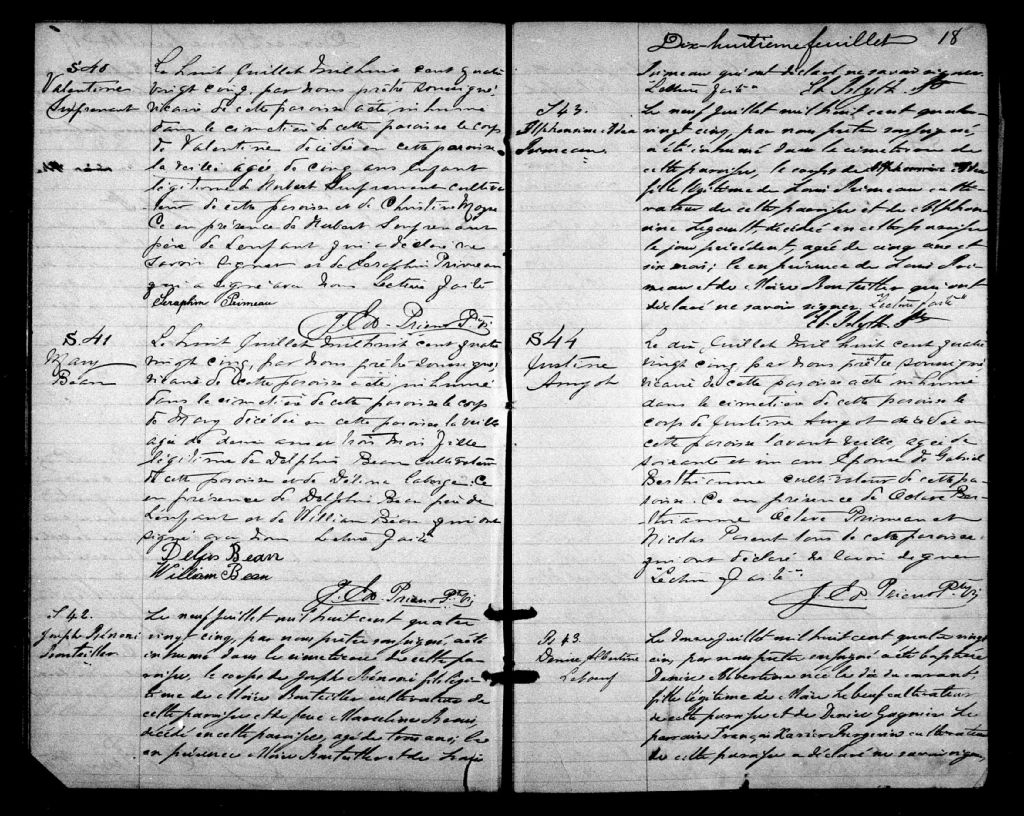 S 40
Valentine
Surprenant
Le huit Juillet mil huit cent quatre
vingt cinq, par nous prêtre soussigné
vicaire de cette paroisse a été inhumé
dans le cimetière de cette paroisse le corps
de Valentine décédée en cette paroisse
la veille agée de cinq ans Enfant
légitime de Hubert Surprenant cultiva
teur de cette paroisse et de Christine
Ce en présence de Hubert Surprenant
père de l'enfant qui a déclaré ne
savoir signer et de Séraphin Primeau
qui a signé avec nous Lecture faite
Seraphin Primeau
J. Ed. Prieur Ptre Vi
S. 41
Mary
Bean
Le huit Juillet mil huit cent quatre
vingt cinq, par nous prêtre soussigné
vicaire de cette paroisse a été inhumé
dans le cimetière de cette paroisse le corps
de Mary décédée en cette paroisse la veille
agée de deux ans et trois mois Fille
légitime de Delphis Bean cultivateur
de cette paroisse et de Délima Laberge. Ce
en présence de Delphis Bean père de
l'enfant et de William Bean qui ont
signé avec nous Lecture faite
Delfis Bean
William Bean
J. Ed. Prieur Ptre Vi
S 42
Joseph
Bouteiller
Le neuf Juillet mil huit cent quatre
vingt cinq, par nous prêtre soussigné, a été
inhumé dans le cimetière de cette pa-
roisse, le corps de Joseph fils légi
time de Moïse Bouteiller cultivateur de
cette paroisse et de feue
décédé en cette paroisse, agé de trois ans; Ce
en présence Moïse Bouteiller et de Louis
Dix-huitième feuillet 18
Primeau qui ont déclaré ne savoir signer
Lecture faite
S 43.
Alphonsine
Primeau
Le neuf Juillet mil huit cent quatre
vingt cinq, par nous prêtre soussigné,
a été inhumé dans le cimetière de
cette paroisse, le corps de Alphonsine
fille légitime de Louis Primeau culti-
vateur de cette paroisse et de Alphon-
sine Legault décédée en cette paroisse
le jour précédent, agée de cinq ans et
six mois; Ce en présence de Louis Pri-
meau et de Moïse Bouteiller qui ont
déclaré ne savoir signer Lecture faite
S 44
Justine
Amyot
Le dix Juillet mil huit cent quatre
vingt cinq, par nous prêtre soussigné
vicaire de cette paroisse a été inhumé
dans le cimetière de cette paroisse le
corps de Justine Amyot décédée en
cette paroisse l'avant veille, agée de
soixante et un ans Epouse de Gabriel
Berthiaume cultivateur de cette pa-
roisse. Ce en présence de Octave Ber-
thiaume Octave Primeau et
Nicolas Parent tous de cette paroisse
qui ont déclaré ne savoir signer
Lecture faite
J. Ed Prieur Ptre Vi
B 43.
Denise Albertine
Lebeuf
Le douze Juillet mil huit cent quatre vingt
cinq par nous prêtre soussigné a été baptisée
Denise Albertine née le dix du courant,
fille légitime de Moïse Lebeuf cultivateur
de cette paroisse et de Denise Gagnier Le
parrain François Xavier cultivateur
de cette paroisse a déclaré ne savoir signer,